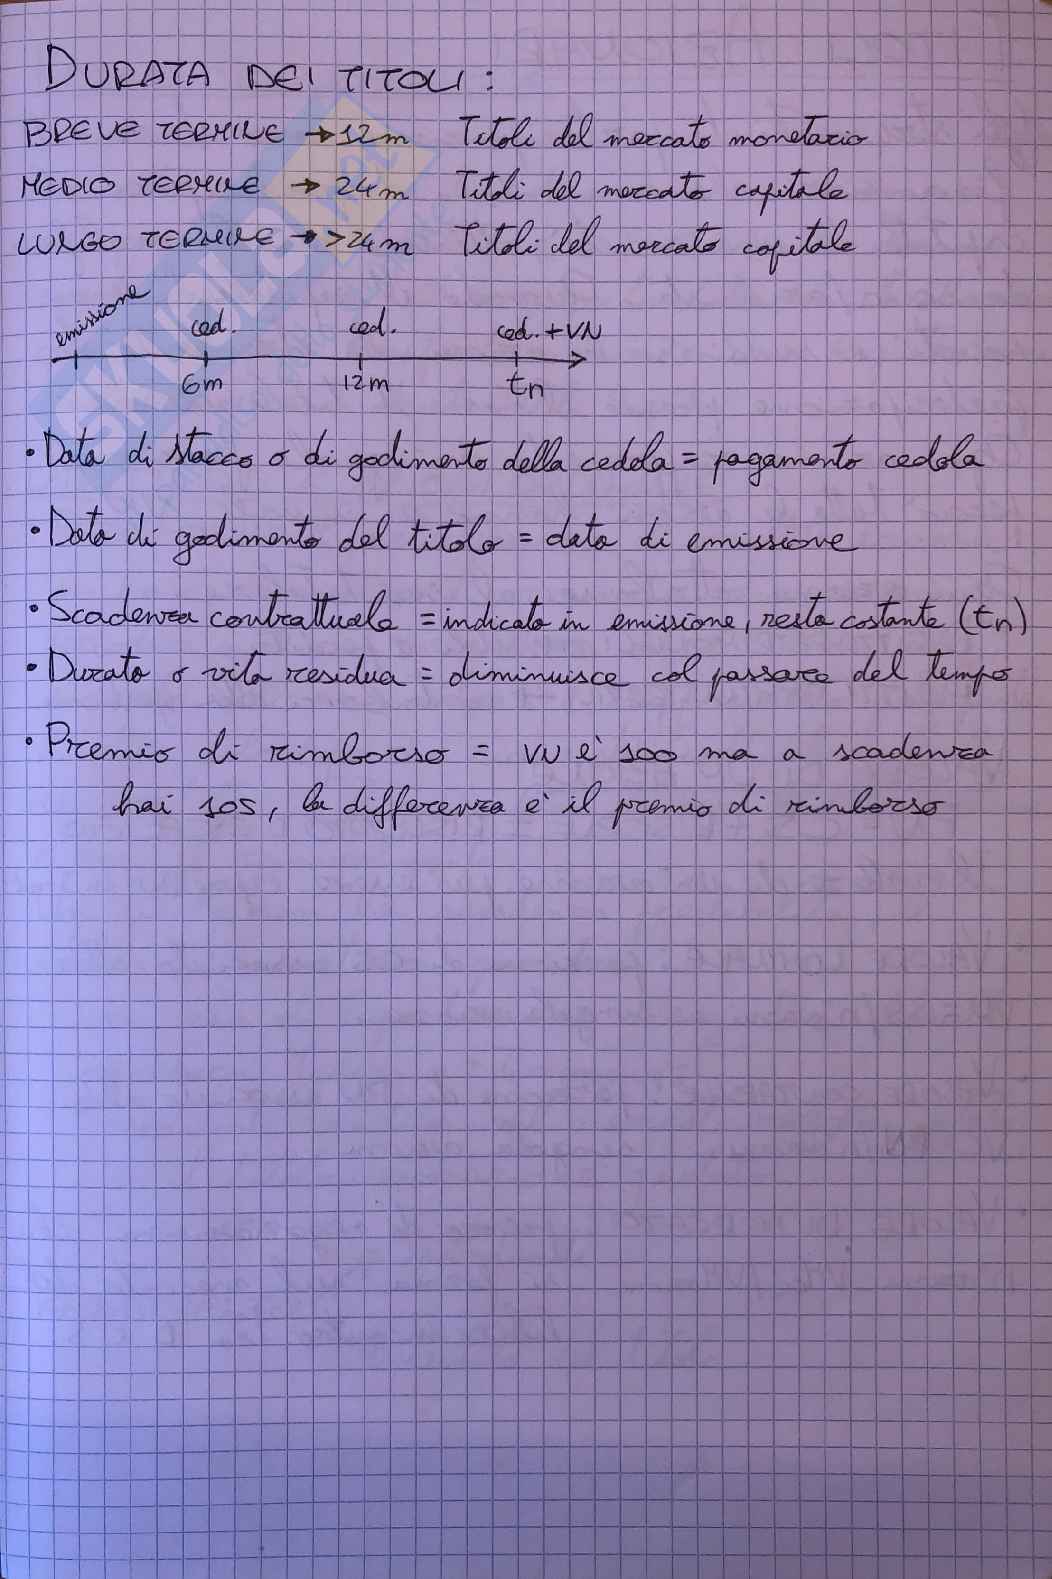 DURATA DEI TITOLI:
BREVE TERMINE → 12m Titoli del mercato monetario
MEDIO TERMINE → 24m Titoli del mercato capitale
LUNGO TERMINE → >24m Titoli del mercato capitale
emissione ced. ced. ced. + VN
6m 12m tn
• Data di stacco o di godimento della cedola = pagamento cedola
• Data di godimento del titolo = data di emissione
• Scadenza contrattuale = indicata in emissione, resta costante (tn)
• Durata o vita residua = diminuisce col passare del tempo
• Premio di rimborso = VN è 100 ma a scadenza
hai 105, la differenza è il premio di rimborso
SKUOLA.net